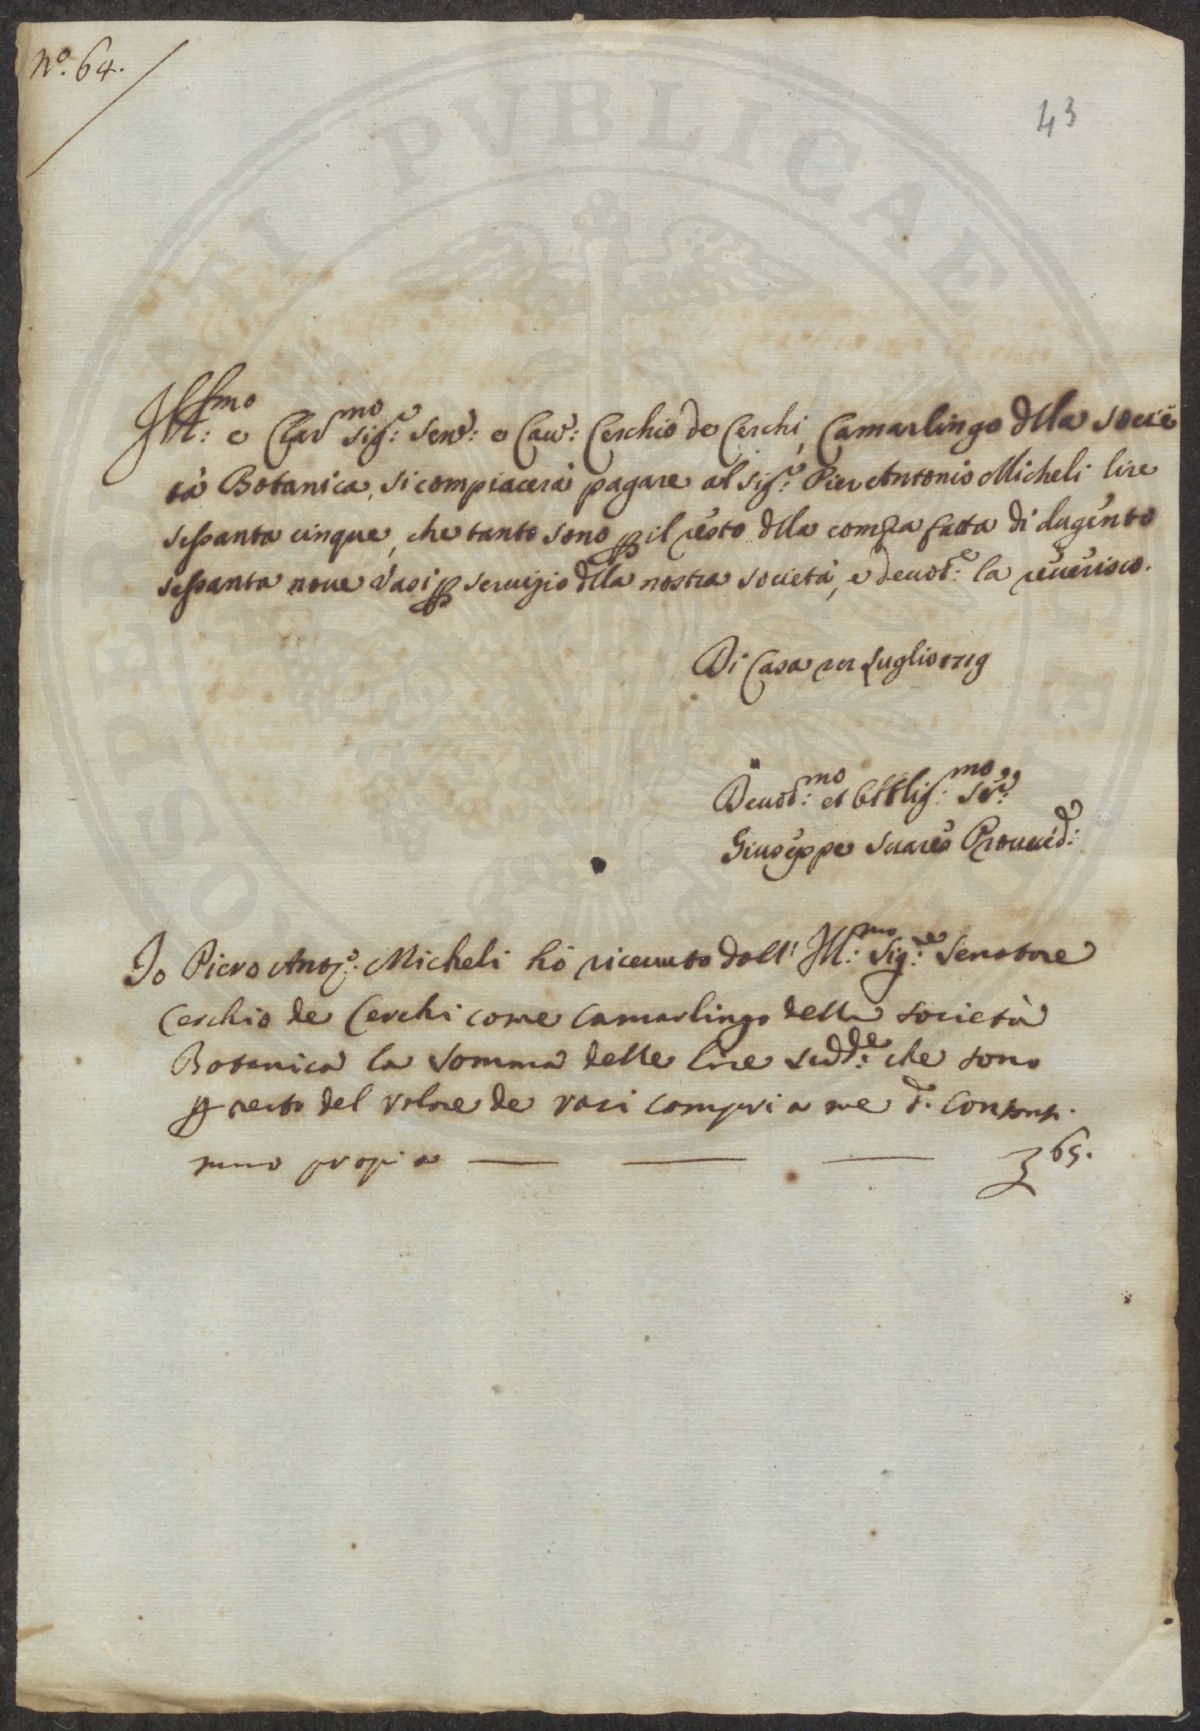 N.º 64.
43
Ill:mo e Clarmo Sig:re Sen:re e Cav:re Cerchio de Cerchi, Camarlingo dlla Socie
tà Botanica, si compiacerà pagare al Sig:re Pier Antonio Micheli lire
sessanta cinque, che tanto sono p il resto dlla compra fatta di dugento
sessanta nove Vasi p servizio dlla nostra società, e devot:e la reverisco.
Di Casa Luglio 1719
Devot:mo et Obblig:mo Se:re
Giuseppe Suares Provved:re
Io Piero Ant.º Micheli hò ricevuto dall' Ill:mo Sig:re Senatore
Cerchio de Cerchi come Camarlingo della Società
Botanica la Somma delle lire sudd:de che sono
p resto del valore de vasi compri a me d. Contanti
mano propia
65.